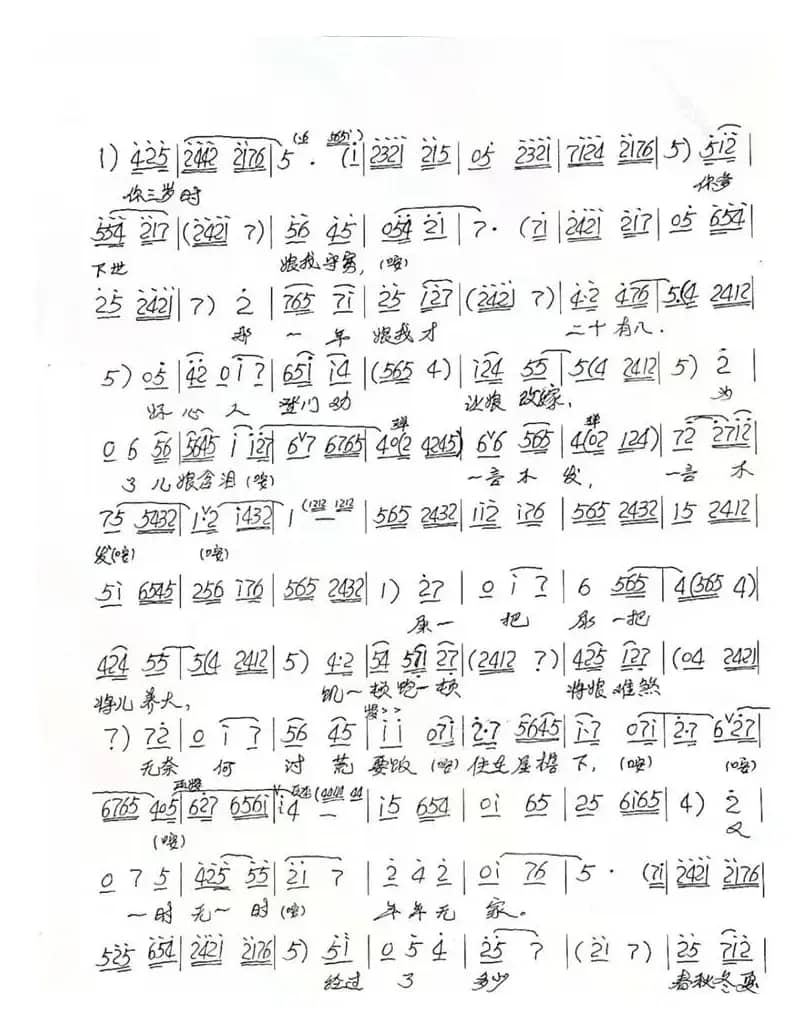 1) 425 | 2442 2176 | 5 · (i | 2321 215 | 05 2321 | 7124 2176 | 5) 512 |
你三岁时 你爹
554 217 | (2421 7) | 56 45 | 054 21 | 7 · (71 | 2421 217 | 05 654 |
下世 娘我守寡, (咹)
25 2421 | 7) 2 | 765 71 | 25 127 | (2421 7) | 4·2 476 | 5(4 2412 |
那一年 娘我才 二十有八.
5) 05 | 42 0 1 7 | 651 14 | (565 4) | 124 55 | 5(4 2412 | 5) 2 |
好心人 登门劝 让娘改嫁, 为
0 6 56 | 5645 1 127 | 6 7 6765 | 40(2 4245) | 6 6 565 | 4(02 124) | 72 2712 |
了儿娘含泪(咹) 一言不发, 一言不
75 5432 | 1·2 1432 | 1 — | 565 2432 | 112 176 | 565 2432 | 15 2412 |
发(咹) (咹)
51 6545 | 256 176 | 565 2432 | 1) 27 | 0 1 7 | 6 565 | 4(565 4) |
屎一把 尿一把
424 55 | 5(4 2412 | 5) 4·2 | 54 561 27 | (2412 7) | 425 127 | (04 2421 |
将儿养大, 饥一顿饱一顿 将娘难煞
7) 72 | 0 1 7 | 56 45 | 1 1 071 | 2·7 5645 | 1·7 071 | 2·7 6 27 |
无奈何 讨荒要饭 (咹) 住在屋檐下, (咹) (咹)
6765 405 | 627 6561 | 14 — | 15 654 | 01 65 | 25 6165 | 4) 2 |
(咹) 又
0 7 5 | 425 55 | 21 7 | 2 4 2 | 01 76 | 5 · (71 | 2421 2176 |
一时无一时(咹) 年年无家。
525 654 | 2421 2176 | 5) 51 | 0 5 4 | 25 7 | (21 7) | 25 712 |
经过了多少 春秋冬夏